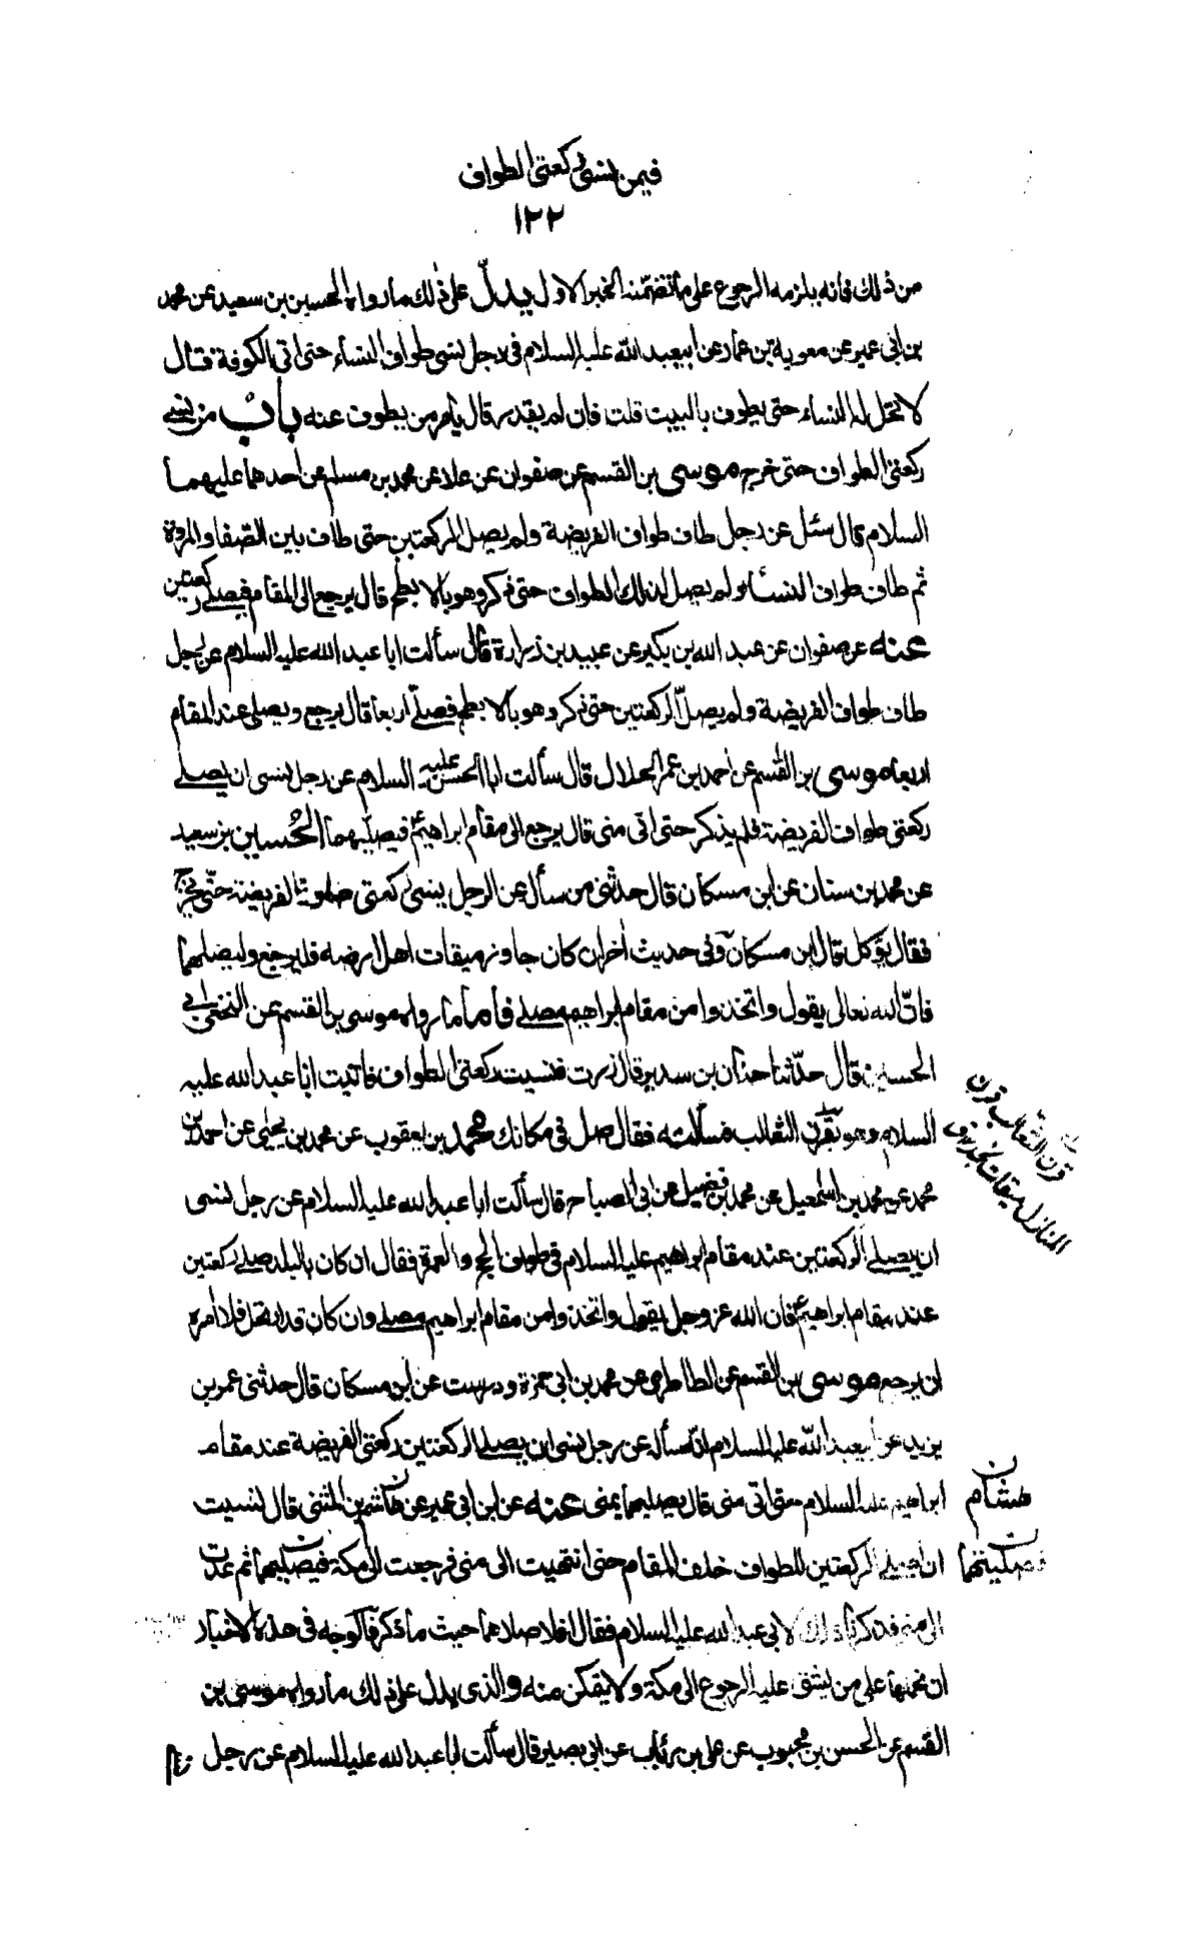 فيمن نسى ركعتى الطواف
١٢٢
من ذلك فانه يلزمه الرجوع على ما تضمّنه الخبر الاول يدلّ على ذلك ما رواه الحسين بن سعيد عن محمد
بن ابى عمير عن معوية بن عمار عن ابيعبد الله عليه السلام فى رجل نسى طواف النساء حتى اتى الكوفة قال
لا تحل له النساء حتى يطوف بالبيت قلت فان لم يقدر قال يأمر من يطوف عنه باب من نسى
ركعتى الطواف حتى خرج موسى بن القسم عن صفوان عن علا عن محمد بن مسلم عن احدهما عليهما
السلام قال سئل عن رجل طاف طواف الفريضة ولم يصل الركعتين حتى طاف بين الصفا والمروة
ثم طاف طواف النساء ولم يصل لذلك الطواف حتى ذكر وهو بالابطح قال يرجع الى المقام فيصلى ركعتين
عنه عن صفوان عن عبد الله بن بكير عن عبيد بن زرارة قال سألت ابا عبد الله عليه السلام عن رجل
طاف طواف الفريضة ولم يصلّ الركعتين حتى ذكر وهو بالابطح فصلّى اربعا قال يرجع ويصلى عند المقام
اربعا موسى بن القسم عن احمد بن عمر الحلال قال سألت ابا الحسن عليه السلام عن رجل نسى ان يصلى
ركعتى طواف الفريضة فلم يذكر حتى اتى منى قال يرجع الى مقام ابراهيم فيصليهما الحسين بن سعيد
عن محمد بن سنان عن ابن مسكان قال حدثنى من سأل عن الرجل ينسى ركعتى طواف الفريضة حتّى يخرج
فقال يوكل قال ابن مسكان وفى حديث اخر ان كان جاوز ميقات اهل ارضه فليرجع وليصلهما
فانّ الله تعالى يقول واتخذوا من مقام ابراهيم مصلى فأما ما رواه موسى بن القسم عن النخعى ابى
الحسين قال حدّثنا حنان بن سدير قال زرت فنسيت ركعتى الطواف فاتيت ابا عبد الله عليه
السلام وهو بقرن الثعالب فسألته فقال صل فى مكانك محمد بن يعقوب عن محمد بن يحيى عن احمد بن
قرن الثعالب قرن
المنازل ميقات نجد
محمد عن محمد بن اسمعيل عن محمد بن فضيل عن ابى الصباح قال سألت ابا عبد الله عليه السلام عن رجل نسى
ان يصلى الركعتين عند مقام ابراهيم عليه السلام فى طواف الحج والعمرة فقال ان كان بالبلد صلى ركعتين
عند مقام ابراهيم فان الله عز وجل يقول واتخذوا من مقام ابراهيم مصلى وان كان قد ارتحل فلا امره
ان يرجع موسى بن القسم عن الطاطرى عن محمد بن ابى حمزة ودرست عن ابن مسكان قال حدثنى عمر بن
يزيد عن ابيعبد الله عليه السلام انه سأله عن رجل نسى ان يصلى الركعتين ركعتى الفريضة عند مقام
ابراهيم عليه السلام حتى اتى منى قال يصليهما بمنى عنه عن ابن ابى عمير عن هاشم بن المثنى قال نسيت
هشام
ان اصلى الركعتين للطواف خلف المقام حتى انتهيت الى منى فرجعت الى مكة فصليتهما ثم عدت
فصليتهما
الى منى فذكرنا ذلك لابى عبد الله عليه السلام فقال افلا صلاهما حيث ما ذكر فالوجه فى هذه الاخبار
ان نحملها على من يشق عليه الرجوع الى مكة ولا يتمكن منه والذى يدل على ذلك ما رواه موسى بن
القسم عن الحسن بن محبوب عن على بن رئاب عن ابى بصير قال سألت ابا عبد الله عليه السلام عن رجل